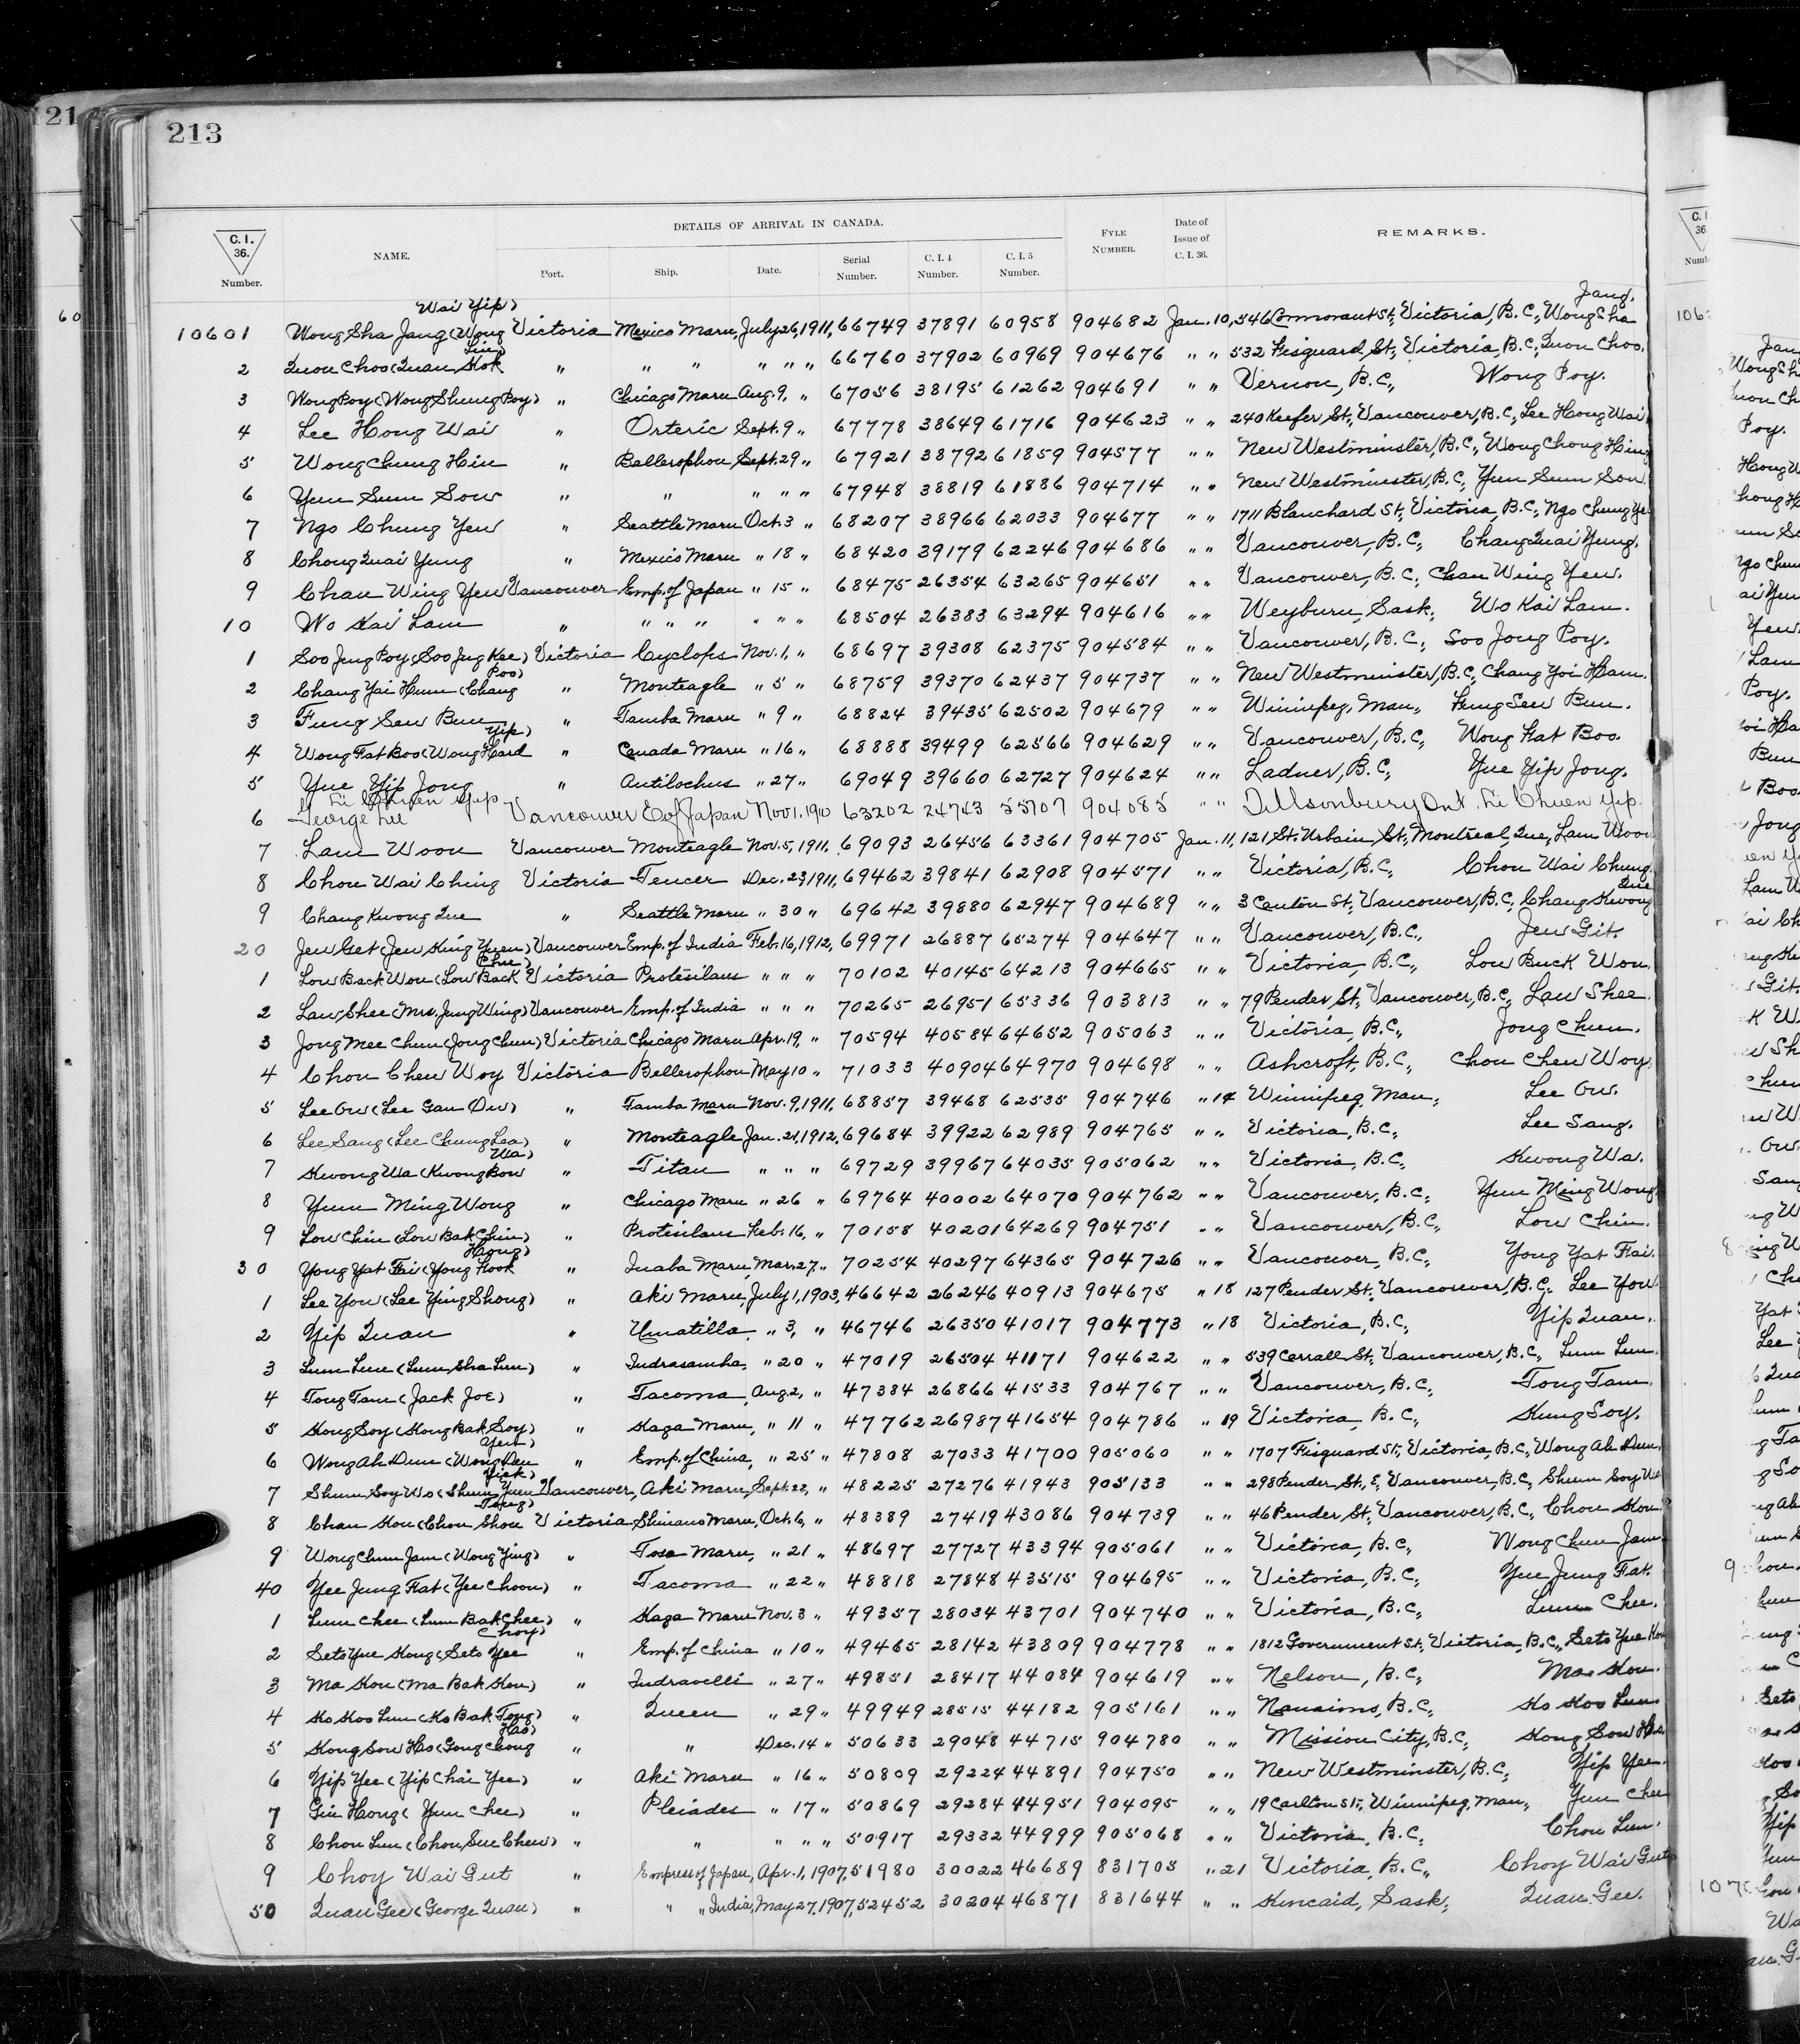 21
213
DETAILS OF ARRIVAL IN CANADA.
C. I. 36. Number. NAME. Port. Ship. Date. Serial Number. C. I. 4 Number. C. I. 5 Number. FYLE NUMBER. Date of Issue of C. I. 36. REMARKS.
Wai Yip) Jang.
10601 Wong Sha Jang (Wong Victoria Mexico Maru, July 26, 1911, 66749 37891 60958 904682 Jan. 10, 546 Cormorant St., Victoria, B.C., Wong Sha
2 Quon Choo (Quan Kok " " " " " " 66760 37902 60969 904676 " " 532 Fisguard St., Victoria, B.C., Quon Choo.
3 Wong Poy (Wong Shung Poy) " Chicago Maru Aug. 9, " 67056 38195 61262 904691 " " Vernon, B.C., Wong Poy.
4 Lee Hong Wai " Orteric Sept. 9 " 67778 38649 61716 904623 " " 240 Keefer St., Vancouver, B.C., Lee Hong Wai
5 Wong Chung Hin " Bellerophon Sept. 29 " 67921 38792 61859 904577 " " New Westminster, B.C., Wong Chong Hing
6 Yum Sum Sow " " " " " 67948 38819 61886 904714 " " New Westminster, B.C., Yum Sum Sow
7 Ngo Chung Yew " Seattle Maru Oct. 3 " 68207 38966 62033 904677 " " 1711 Blanchard St., Victoria, B.C., Ngo Chung Ye
8 Chong Quai Yung " Mexico Maru " 18 " 68420 39179 62246 904686 " " Vancouver, B.C., Chang Quai Yung.
9 Chan Wing Yew Vancouver Emp. of Japan " 15 " 68475 26354 63265 904651 " " Vancouver, B.C., Chan Wing Yew.
10 Wo Kai Lam " " " " " " " 68504 26383 63294 904616 " " Weyburn, Sask., Wo Kai Lam.
1 Soo Jung Poy (Soo Jug Kee) Victoria Cyclops Nov. 1, " 68697 39308 62375 904584 " " Vancouver, B.C., Soo Jong Poy.
Poo)
2 Chang Yai Hum (Chang " Monteagle " 5 " 68759 39370 62437 904737 " " New Westminster, B.C., Chang Yoi Ham.
3 Fung Sew Bun " Tamba Maru " 9 " 68824 39435 62502 904679 " " Winnipeg, Man., Fung Sew Bun.
Yip)
4 Wong Fat Boo (Wong Hard " Canada Maru " 16 " 68888 39499 62566 904629 " " Vancouver, B.C., Wong Fat Boo.
5 Yue Yip Jong " Antilochus " 27 " 69049 39660 62727 904624 " " Ladner, B.C., Yue Yip Jong.
Li Chuen Yip
6 George Lee Vancouver E of Japan Nov 1, 1910 63202 24743 55707 904085 " " Tillsonbury Ont. Li Chuen Yip.
7 Lam Woon Vancouver Monteagle Nov. 5, 1911, 69093 26456 63361 904705 Jan. 11, 121 St. Urbain St., Montreal, Que., Lam Woon
8 Chou Wai Ching Victoria Teucer Dec. 23, 1911, 69462 39841 62908 904571 " " Victoria, B.C., Chou Wai Chung.
Que
9 Chang Kwong Que " Seattle Maru " 30 " 69642 39880 62947 904689 " " 3 Canton St., Vancouver, B.C., Chang Kwong
20 Jew Get (Jew King Yuen) Vancouver Emp. of India Feb. 16, 1912, 69971 26887 65274 904647 " " Vancouver, B.C., Jew Git.
Chee)
1 Low Back Won (Low Back Victoria Protesilaus " " " 70102 40145 64213 904665 " " Victoria, B.C., Low Buck Won.
2 Law Shee (Mrs. Jung Wing) Vancouver Emp. of India " " " 70265 26951 65336 903813 " " 79 Pender St., Vancouver, B.C., Law Shee.
3 Jong Mee Chun (Jong Chun) Victoria Chicago Maru Apr. 19, " 70594 40584 64652 905063 " " Victoria, B.C., Jong Chun.
4 Chou Chew Woy Victoria Bellerophon May 10 " 71033 40904 64970 904698 " " Ashcroft, B.C., Chou Chew Woy.
5 Lee Ow (Lee Gan Ow) " Tamba Maru Nov. 9, 1911, 68857 39468 62535 904746 " 14 Winnipeg, Man., Lee Ow.
6 Lee Sang (Lee Chung Lea) " Monteagle Jan. 21, 1912, 69684 39922 62989 904765 " " Victoria, B.C., Lee Sang.
Wa)
7 Kwong Wa (Kwong Bow " Titan " " " 69729 39967 64035 905062 " " Victoria, B.C., Kwong Wa.
8 Yum Ming Wong " Chicago Maru " 26 " 69764 40002 64070 904762 " " Vancouver, B.C., Yum Ming Wong.
9 Low Chin (Low Bak Chin) " Protesilaus Feb. 16, " 70158 40201 64269 904751 " " Vancouver, B.C., Low Chin.
Hong)
30 Yong Yat Fai (Yong Kook " Inaba Maru, Mar. 27, " 70254 40297 64365 904726 " " Vancouver, B.C., Yong Yat Fai.
1 Lee You (Lee Ying Shong) " Aki Maru, July 1, 1903, 46642 26246 40913 904675 " 18 127 Pender St., Vancouver, B.C., Lee You
2 Yip Quan " Umatilla, " 3, " 46746 26350 41017 904773 " 18 Victoria, B.C., Yip Quan.
3 Lum Lum (Lum Sha Lum) " Indrasamha, " 20 " 47019 26504 41171 904622 " " 539 Carrall St., Vancouver, B.C., Lum Lum.
4 Tong Tam (Jack Joe) " Tacoma, Aug. 2, " 47384 26866 41533 904767 " " Vancouver, B.C., Tong Tam.
5 Kong Soy (Kong Bak Soy) " Kaga Maru, " 11 " 47762 26987 41654 904786 " 19 Victoria, B.C., Kung Soy.
Yen)
6 Wong Ah Dun (Wong Den " Emp. of China, " 25 " 47808 27033 41700 905060 " " 1707 Fisguard St., Victoria, B.C., Wong Ah Dun.
Yick)
7 Shum Soy Wo (Shum Yuen Vancouver, Aki Maru, Sept. 22, " 48225 27276 41943 905133 " " 298 Pender St., E, Vancouver, B.C., Shum Soy Wo
Tong)
8 Chan Kou (Chou Shou Victoria Shinano Maru, Oct. 6, " 48389 27419 43086 904739 " " 46 Pender St., Vancouver, B.C., Chou Kou
9 Wong Chum Jam (Wong Ying) " Tosa Maru, " 21 " 48697 27727 43394 905061 " " Victoria, B.C., Wong Chun Jam
40 Yee Jung Fat (Yee Choon) " Tacoma " 22 " 48818 27848 43515 904695 " " Victoria, B.C., Yue Jung Fat.
1 Lum Chee (Lum Bak Chee) " Kaga Maru Nov. 3 " 49357 28034 43701 904740 " " Victoria, B.C., Lum Chee.
Choy)
2 Seto Yue Kong (Seto Yee " Emp. of China " 10 " 49465 28142 43809 904778 " " 1812 Government St., Victoria, B.C., Seto Yue Kon
3 Ma Kou (Ma Bak Kou) " Indravelli " 27 " 49851 28417 44084 904619 " " Nelson, B.C., Ma Kou.
4 Ko Koo Lum (Ko Bak Tong) " Queen " 29 " 49949 28515 44182 905161 " " Nanaimo, B.C., Ko Koo Lum
Hao)
5 Kong Sow Ho (Gong Chong " " Dec. 14 " 50633 29048 44715 904780 " " Mission City, B.C., Kong Sow
6 Yip Yee (Yip Chai Yee) " Aki Maru " 16 " 50809 29224 44891 904750 " " New Westminster, B.C., Yip Yee.
7 Gin Hong (Yun Chee) " Pleiades " 17 " 50869 29284 44951 904095 " " 19 Carlton St., Winnipeg, Man., Yun Chee
8 Chou Lun (Chou Sue Chew) " " " " " 50917 29332 44999 905068 " " Victoria, B.C., Chou Lun.
9 Choy Wai Gut " Empress of Japan, Apr. 1, 1907, 51980 30022 46689 831705 " 21 Victoria, B.C., Choy Wai Gut
50 Quan Gee (George Quan) " " " India, May 27, 1907, 52452 30204 46871 831644 " " Kincaid, Sask., Quan Gee.